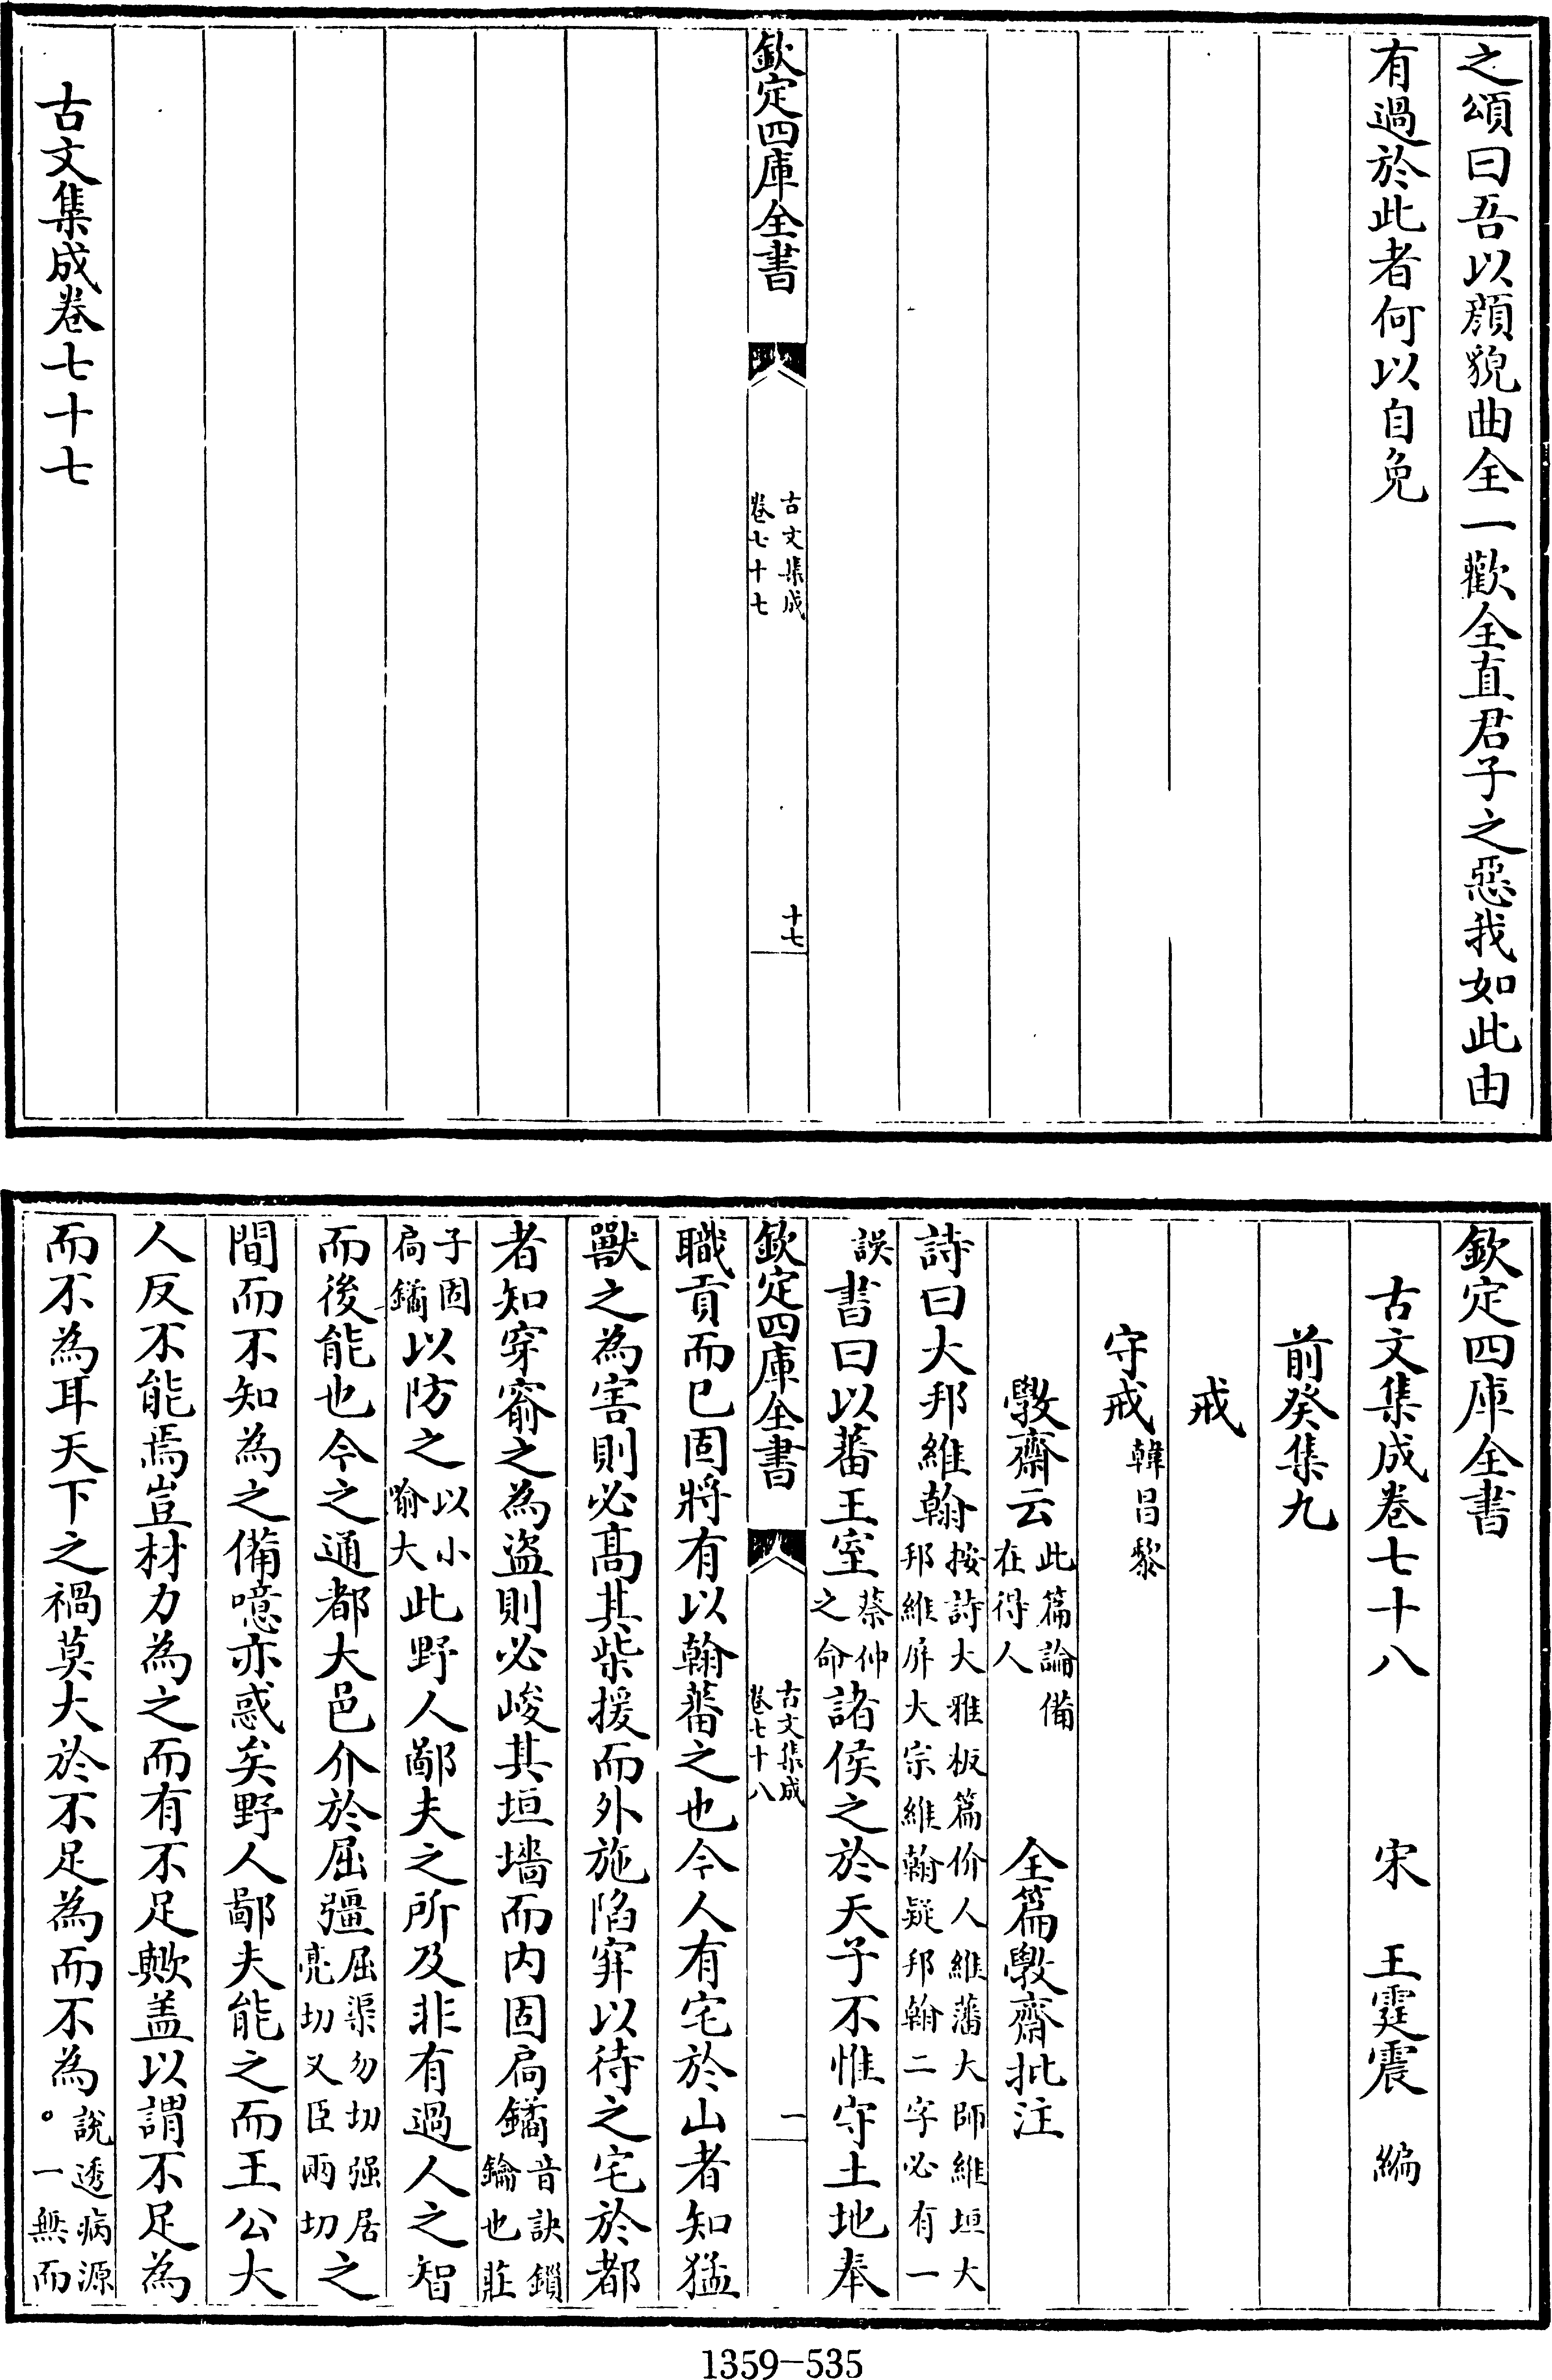 之頌曰吾以顔貌曲全一歡全直君子之惡我如此由
有過於此者何以自免
欽定四庫全書
古文集成
卷七十七
十七
古文集成卷七十七
欽定四庫全書
古文集成卷七十八 宋 王霆震 編
前癸集九
戒
守戒韓昌黎
斆齋云此篇論備
在得人 全篇斆齋批注
詩曰大邦維翰按詩大雅板篇价人維藩大師維垣大
邦維屏大宗維翰疑邦翰二字必有一
誤書曰以蕃王室蔡仲
之命諸侯之於天子不惟守土地奉
欽定四庫全書
古文集成
卷七十八
一
職貢而已固將有以翰蕃之也今人有宅於山者知猛
獸之為害則必髙其柴援而外施陷穽以待之宅於都
者知穿窬之為盜則必峻其垣墻而内固扃鐍音訣鎖
鑰也莊
子固
扃鐍以防之以小
喻大此野人鄙夫之所及非有過人之智
而後能也今之通都大邑介於屈彊屈渠勿切强居
亮切又臣兩切之
間而不知為之備噫亦惑矣野人鄙夫能之而王公大
人反不能焉豈材力為之而有不足歟盖以謂不足為
而不為耳天下之禍莫大於不足為而不為。說透病源
一無而
1359-535